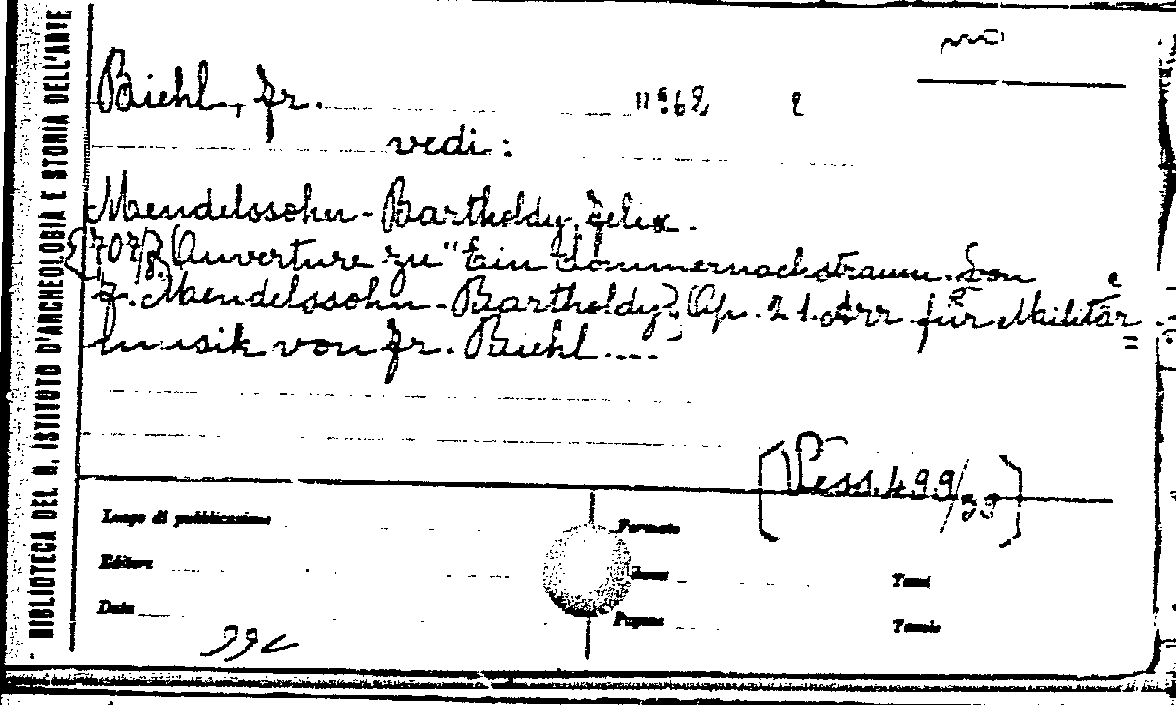 BIBLIOTECA DEL R. ISTITUTO D'ARCHEOLOGIA E STORIA DELL'ARTE
Biehl, fr.
vedi:
Mendelssohn-Bartholdy, Felix.
Ouverture zu "Ein Sommernachstraum. Von
F. Mendelssohn-Bartholdy, Op. 21. Arr. für Militär
=
musik von fr. Biehl....
[Vess. 499/39]
Luogo di pubblicazione
Formato
Editore
Tomi
Data
Pagine
Tavole